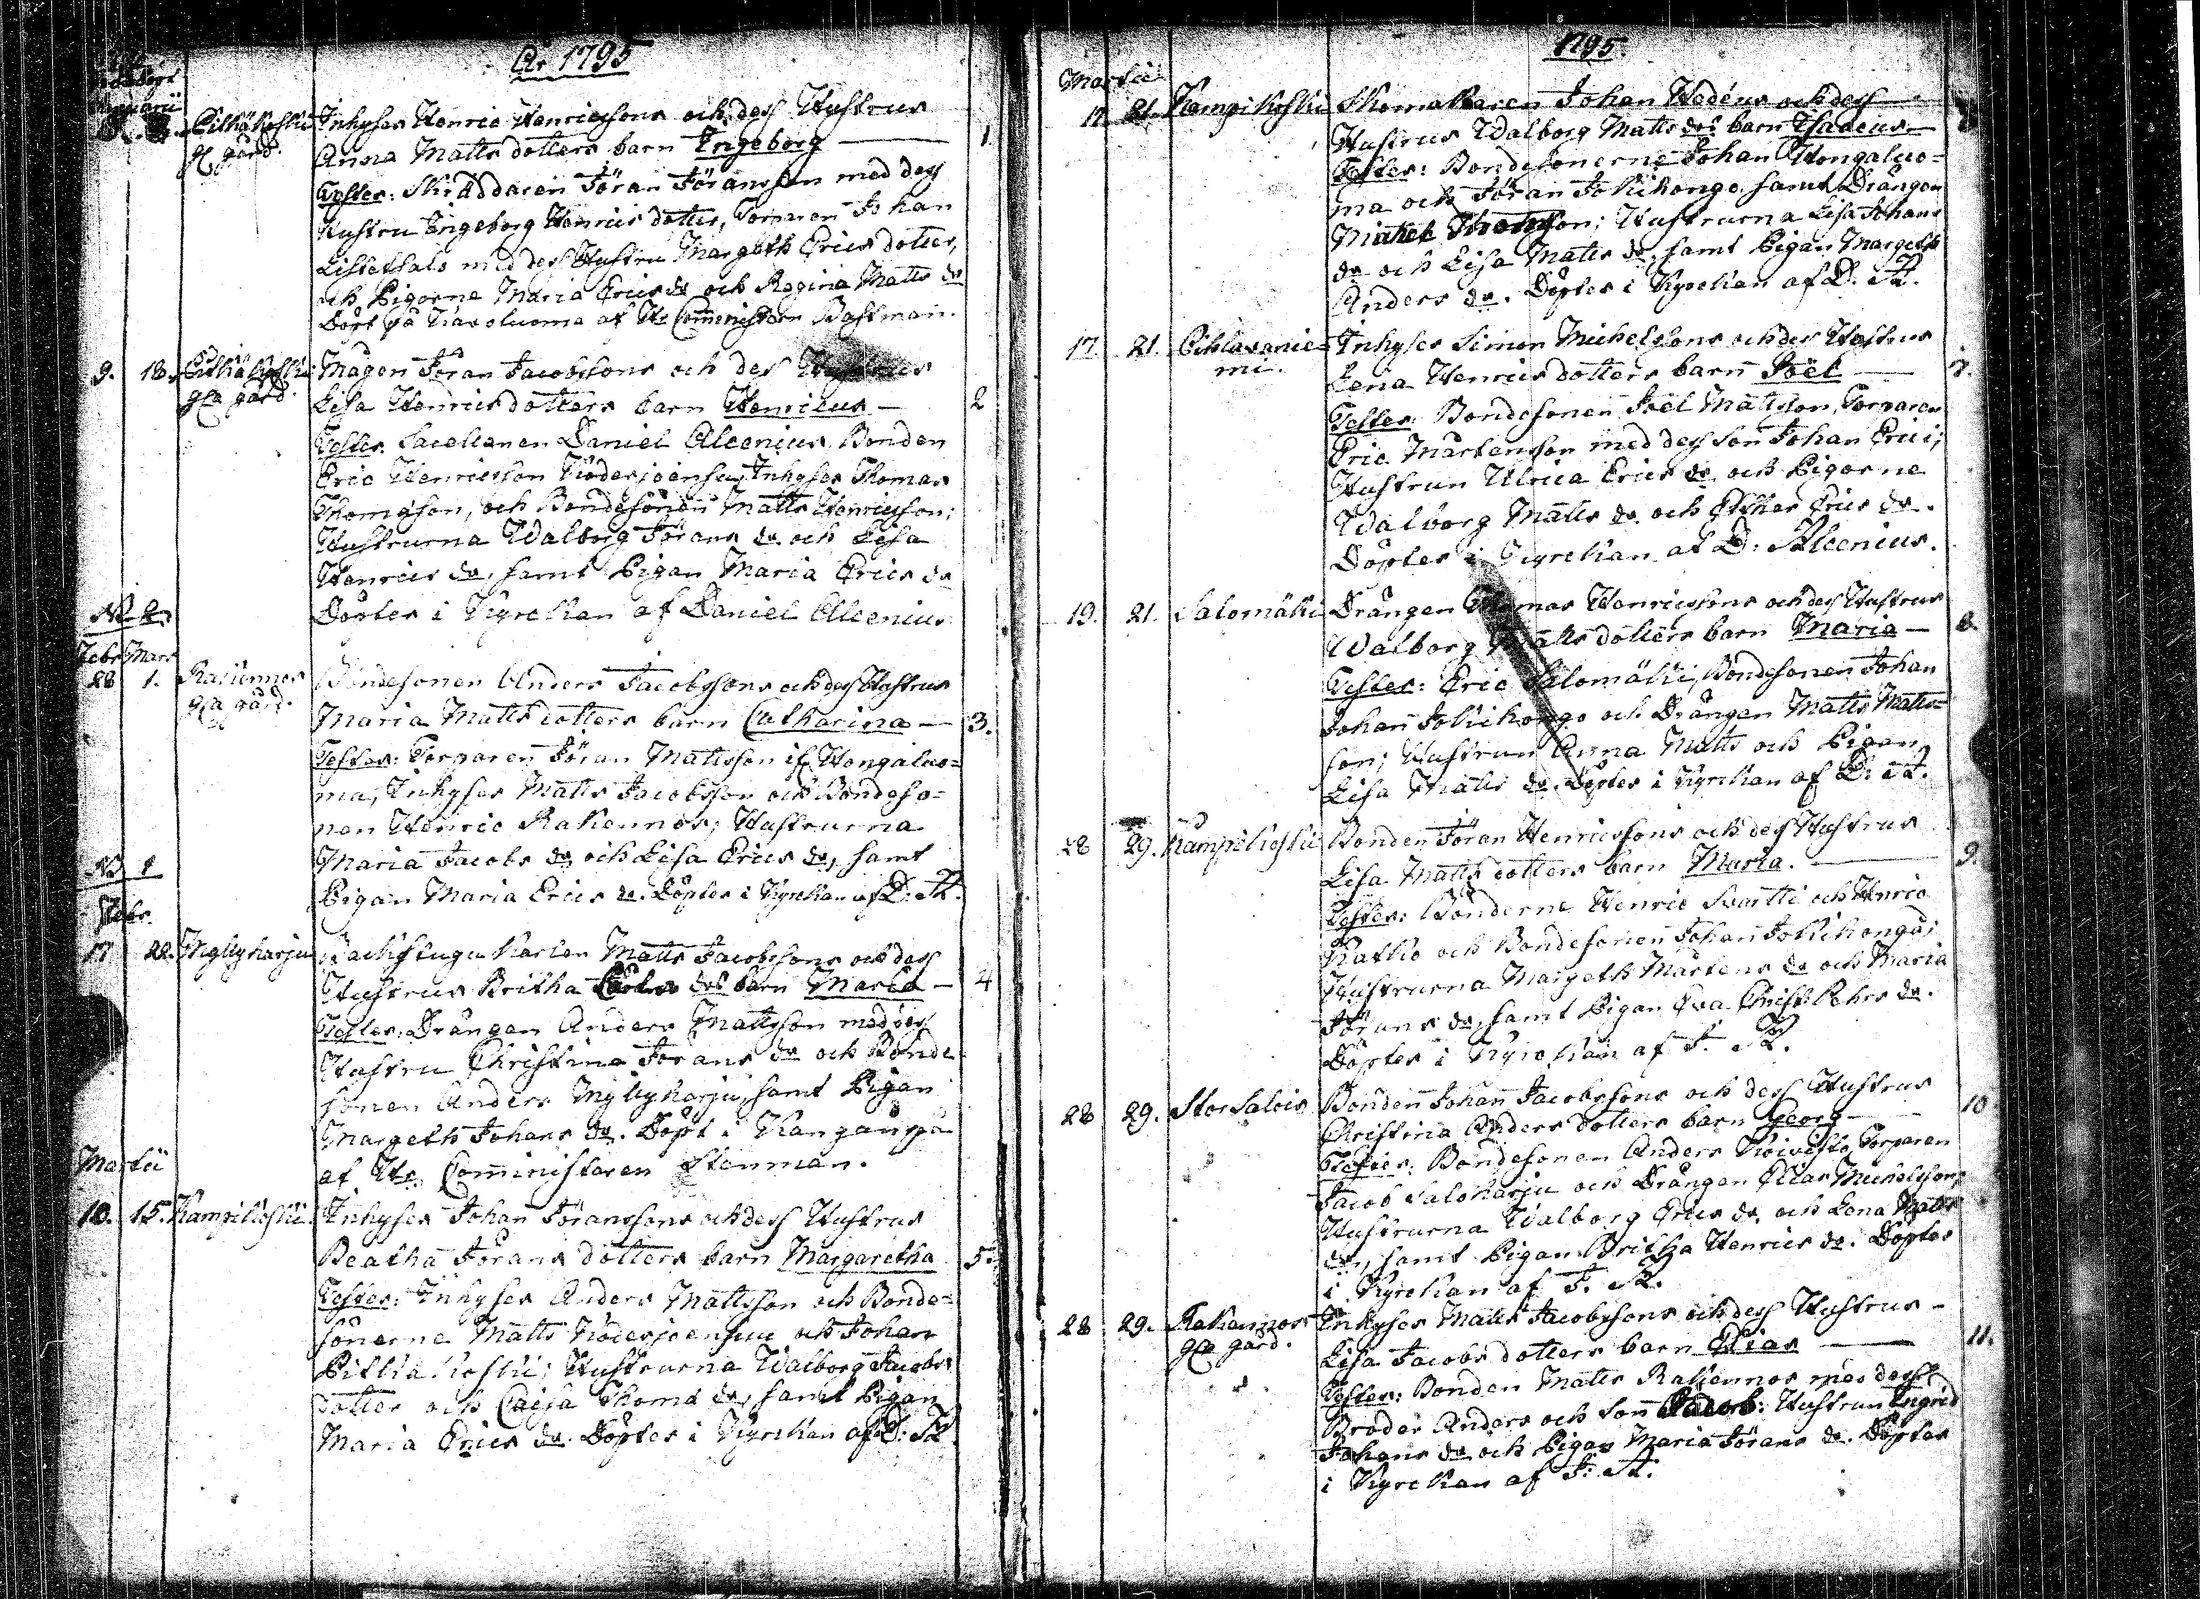 Ar 1795
Januarii
Pitkäkoski Inhyses Henric Henricssons och dess Hustrus
gla gård. Anna Matts dotters barn Ingeborg — 1
Testes: Skräddaren Jöran Jöransson med dess
Hustru Ingeborg Henrics dotter, Torparen Johan
med dess Hustru Margeth Erics dotter,
och Pigorne Maria Erics dr och Regina Matts dr
Döpt på af Hr Comministern Bastman.
9. 18. Pitkäkoski Mågen Jöran Jacobssons och dess Hustrus
gla gård. Lisa Henrics dotters barn Henricus — 2
Testes. Sacellanen Daniel Alcenius, Bonden
Eric Henricsson Inhyses Thomas
Thomasson, och Bondesonen Matts Henricsson;
Hustrurna Walborg Jörans dr och Lisa
Henrics dr, samt Pigan Maria Erics dr
Döptes i Kyrckan af Daniel Alcenius
NB 2
Febr Mars
28 1. Rakennos Bondesonen Anders Jacobssons och dess Hustrus
gla gård. Maria Matts dotters barn Catharina — 3.
Testes: Torparen Jöran Mattsson if. Hongaluo=
ma, Inhyses Matts Jacobsson och Bondeso=
nen Henric Rakennos; Hustrurna
Maria Jacobs dr och Lisa Erics dr, samt
Pigan Maria Erics dr. Döptes i Kyrckan af D: A.
NB 1
Febr.
17 22. Myllyharju Backstugu Karlen Matts Jacobssons och dess
Hustrus Britha drs barn Maria — 4
Testes: Drängen Anders Mattsson med dess
Hustru Christina Jörans dr och Bonde
sonen Anders Myllyharju, samt Pigan
Margeth Johans dr. Döpt i Kangånpä
af Hr Comministeren Stenman.
Martii
10. 15. Kampikoski. Inhyses Johan Jöranssons och dess Hustrus
Beatha Jörans dotters barn Margaretha 5.
Testes: Inhyses Anders Mattsson och Bonde=
sönerne Matts och Johan
Pitkäkoski; Hustrurna Walborg Jacobs
dotter och Caisa Thoma dr, samt Pigan
Maria Erics dr. Döptes i Kyrckan af D: A
1795.
Martii
17. 21. Kampikoski Skomakaren Johan Hedéns och dess
Hustrus Walborg Matts drs barn Isacus —
Testes: Bondesönerne Johan Hongaluo=
ma och Jöran Jokikongo, samt Drängen
Michel Hustrurna Lisa Johans
dr och Lisa Matts dr, samt Pigan Margeth
Anders dr. Döptes i Kyrckan af D. A.
17. 21. Pihlavanie= Inhyses Simon Michelssons och dess Hustrus
mi. Lena Henrics dotters barn Joël — 7.
Testes: Bondesonen Joel Mattsson, Torparen
Eric Mårtensson med dess son Johan Erici;
Hustrun Ulrica Erics dr och Pigorne
Walborg Matts dr. och Esther Erics dr.
Döptes i Kyrckan af D: Alcenius.
19. 21. Salomäki Drängen Thomas Henricssons och dess Hustrus
Walborg Matts dotters barn Maria — 8.
Testes: Eric Salomäki, Bondesonen Johan
Johan Jokikongo och Drängen Matts Matts=
son; Hustrun Anna Matts och Pigan
Lisa Matts dr. Döptes i Kyrckan af D: A.
28 29. Kampikoski Bonden Jöran Henricssons och dess Hustrus
Lisa Matts dotters barn Maria. — 9.
Testes: Bönderne Henric Svartti och Henric
Katko och Bondesonen Johan Jokikongo;
Hustrurna Margeth Mårtens dr och Maria
Jörans dr, samt Pigan Eva Christ: Pehrs dr.
Döptes i Kyrckan af J. A.
28 29. Stor Salois Bonden Johan Jacobssons och dess Hustrus
Christina Anders dotters barn Georg — 10
Testes: Bondesonen Anders Koivisto, Torparen
Jacob Saloharju och Drängen Elias Michelsson,
Hustrurna Walborg Erics dr. och Lena Matts
dr, samt Pigan Britha Henrics dr. Döptes
i Kyrckan af J. A.
28 29. Rakennos Inhyses Matts Jacobssons och dess Hustrus
gla gård. Lisa Jacobs dotters barn Elias — 11.
Testes: Bonden Matts Rakennos med dess
Broder Anders och son Jacob: Hustrun Ingrid
Johans dr och Pigan Maria Jörans dr. Döptes
i Kyrckan af J: A.